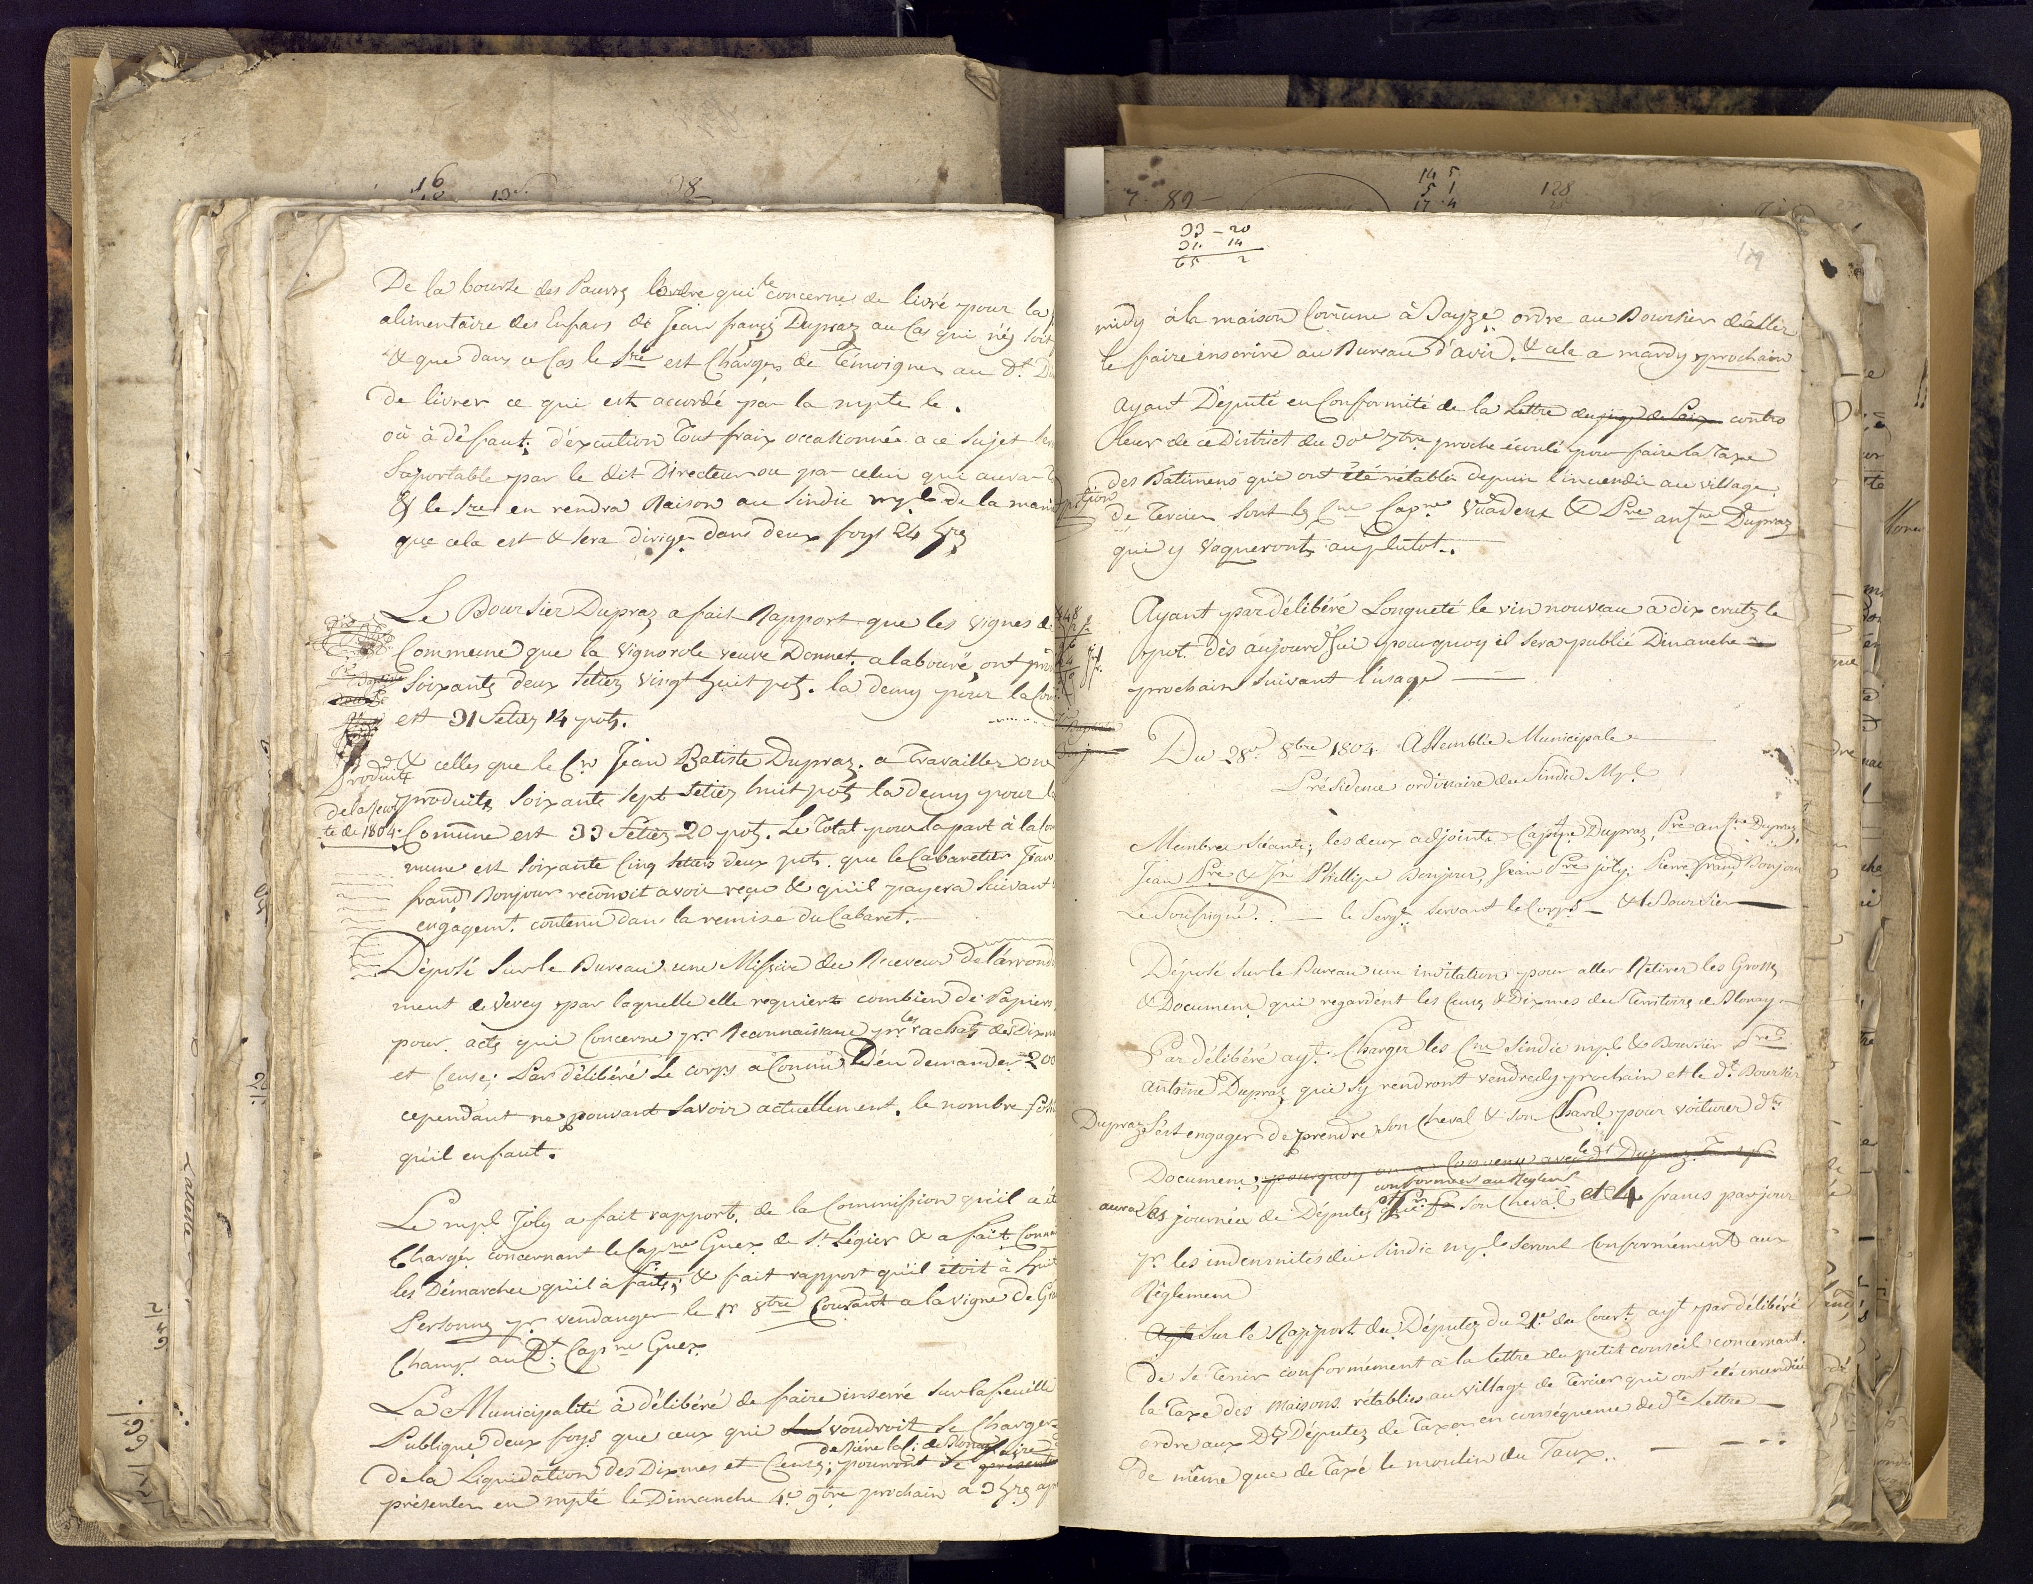 De la bourse des Pauvres l'ordre qui le concerne de livré pour la
alimentaire des Enfans de Jean françs Dupraz au Cas qui n'éz soit
& que dans ce Cas le Sre est Chargés de Témoigner au Dt
De livrer ce qui est accordé par la mpte le.
où à défaut; d'éxcution Tout fraix occationnée a ce Sujet
Suportable par le dit Directeur ou par celui qui aura
& le Sre en rendra Raison au Sindic mpl de la
que cela est & Sera dirigé dans deux foys 24 hres
Le Boursier Dupraz a fait Rapport que les vignes de
Commune que la vignorole veuve Donnet. a labouré, ont
Soixante deux Setiers vingt huit pots. la demy pour la
est 31 Setiers 14 pots.
& celles que le Cn Jean Batiste Dupraz. a Travailler
produits Soixante Sept Setiers huit pots la demy pour la
Produit
de la Récol
te de 1804.
Commune est 33 Setiers 20 pots. Le Total pour la part à la
mune est Soixante Cinq Setiers deux pots. que le Cabaretier Jean
frand Bonjour reconnoit avoir reçu & qu'il payera Suivant
engagemt. contenu dans la remise du Cabaret.
Déposé Sur le Bureau une Missive du Receveur De l'arrond
ment de Vevey par laquelle elle requiert combien de Papiers
pour acts qui Concerne pr. Reconnaissance pr les rachats des Dixm
et Cense; Par délibéré Le corps à Commis, D'en demander 200
cependant ne pouvant Savoir actuellement. le nombre
qu'il en faut.
Le mpl Joly a fait rapport. de la Commission qu'il a
Chargés concernant le Capne Guex de St Légier & a fait
les Démarches qu'il a faits; & fait rapport qu'il étoit à huit
Personnes pr. vendanger le 1r 8bre Courant a la vigne De
Champ au Dt. Capne Guex.
La Municipalité à délibéré de faire inserré Sur la feuille
Publique deux foys que ceux qui voudroit Se Charger
de la Liquidation des Dixmes et Censes; pouvront Se
présenter en mpté le Dimanche 4e 9bre prochain à 3 hres
33 - 20
31. 14
65 2
midy à la maison Commune à Bayze ordre au Boursier d'aller
le faire inscrire au Bureau d'avis. & cela a mardy prochain
Ayant Députté en Conformité de la Lettre du juge de Paix contro
leur de ce District du 30e 7bre proche écoulé pour faire la Taxe
des Batimens qui ont été rétablis depuis l'incendie au village
de Tercier Sont les Cne Capne Vuadens & Pre antne Dupraz
qui y vaqueront au plutot.
Ayant par délibéré Longueté le vin nouveau a dix crutz le
pot. Dès aujourd'hui pourquoy il Sera publié Dimanche
prochain Suivant l'usage
Du 28e 8bre 1804 Assemblée Municipale
Présidence ordinaire du Sindic Mpl
Membres Séants; les deux adjoints Capne Dupraz, Pre antne Dupraz,
Jean Pre & Jn Phillipe Bonjour, Jean Pre joly; Pierre frand Bonjour
Le Soussigné. le Sergt. servant le Corps & le Boursier
Déposé Sur le Bureau une invitation pour aller Retirer les Grosses
& Documens qui regardent les Cense & Dixmes du Territoire de Blonay
Par délibéré ayt. Charger les Cne Sindic mpl & Boursier Pre
antoine Dupraz qui S'y rendront vendredy prochain et le dt Boursier
Dupraz S'est engager de prendre Son Cheval & Son Chard pour voiturer dts
Documens; pourquoy on a Convenu avec le dt Dupraz
conformes au Réglemt
aura les journée de Députés Son Cheval et 4 francs par jour
pr. les indemnités du Sindic mpl Seront Conformément aux
Réglemens
Ayt Sur le Rapport des Députés du 21e du Court. ayt par délibéré
De Se Tenir conformément à la lettre du petit Conseil concernant.
la Taxe des maisons rétablies au village de Tercier qui ont été incendiées
ordre aux Dts Députés de Taxer en conséquence de dte Lettre
De même que de Taxé le moulin du Taux.